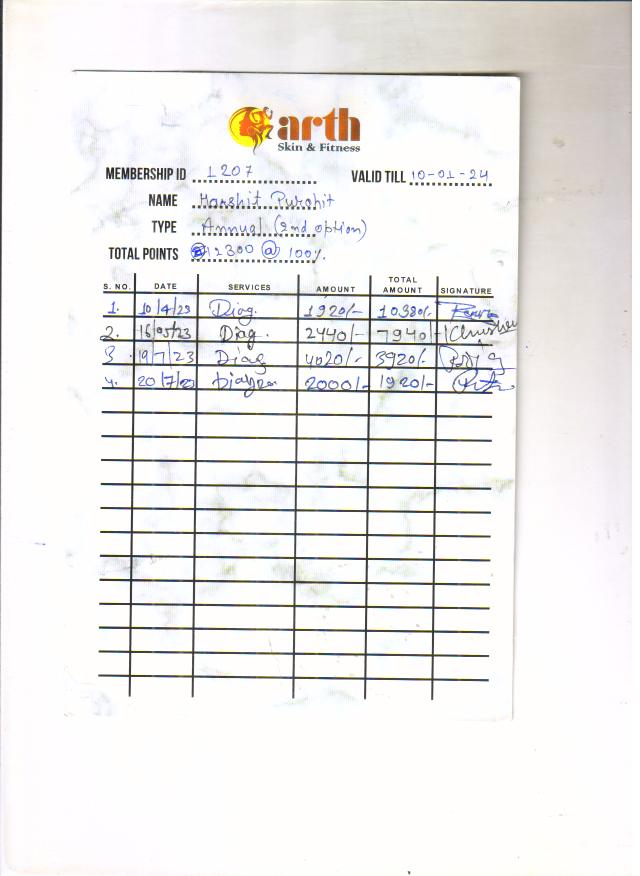 arth
Skin & Fitness
MEMBERSHIP ID 1207 VALID TILL 10-01-24
NAME Harshit Purohit
TYPE Annual (2nd option)
TOTAL POINTS 12300 @ 100%
S. NO. DATE SERVICES AMOUNT TOTAL AMOUNT SIGNATURE
1. 10/4/23 Diag. 1920/- 10380/-
2. 16/05/23 Diag. 2440/- 7940/-
3. 19/7/23 Diag 4020/- 3920/-
4. 20/7/23 2000/- 1920/-